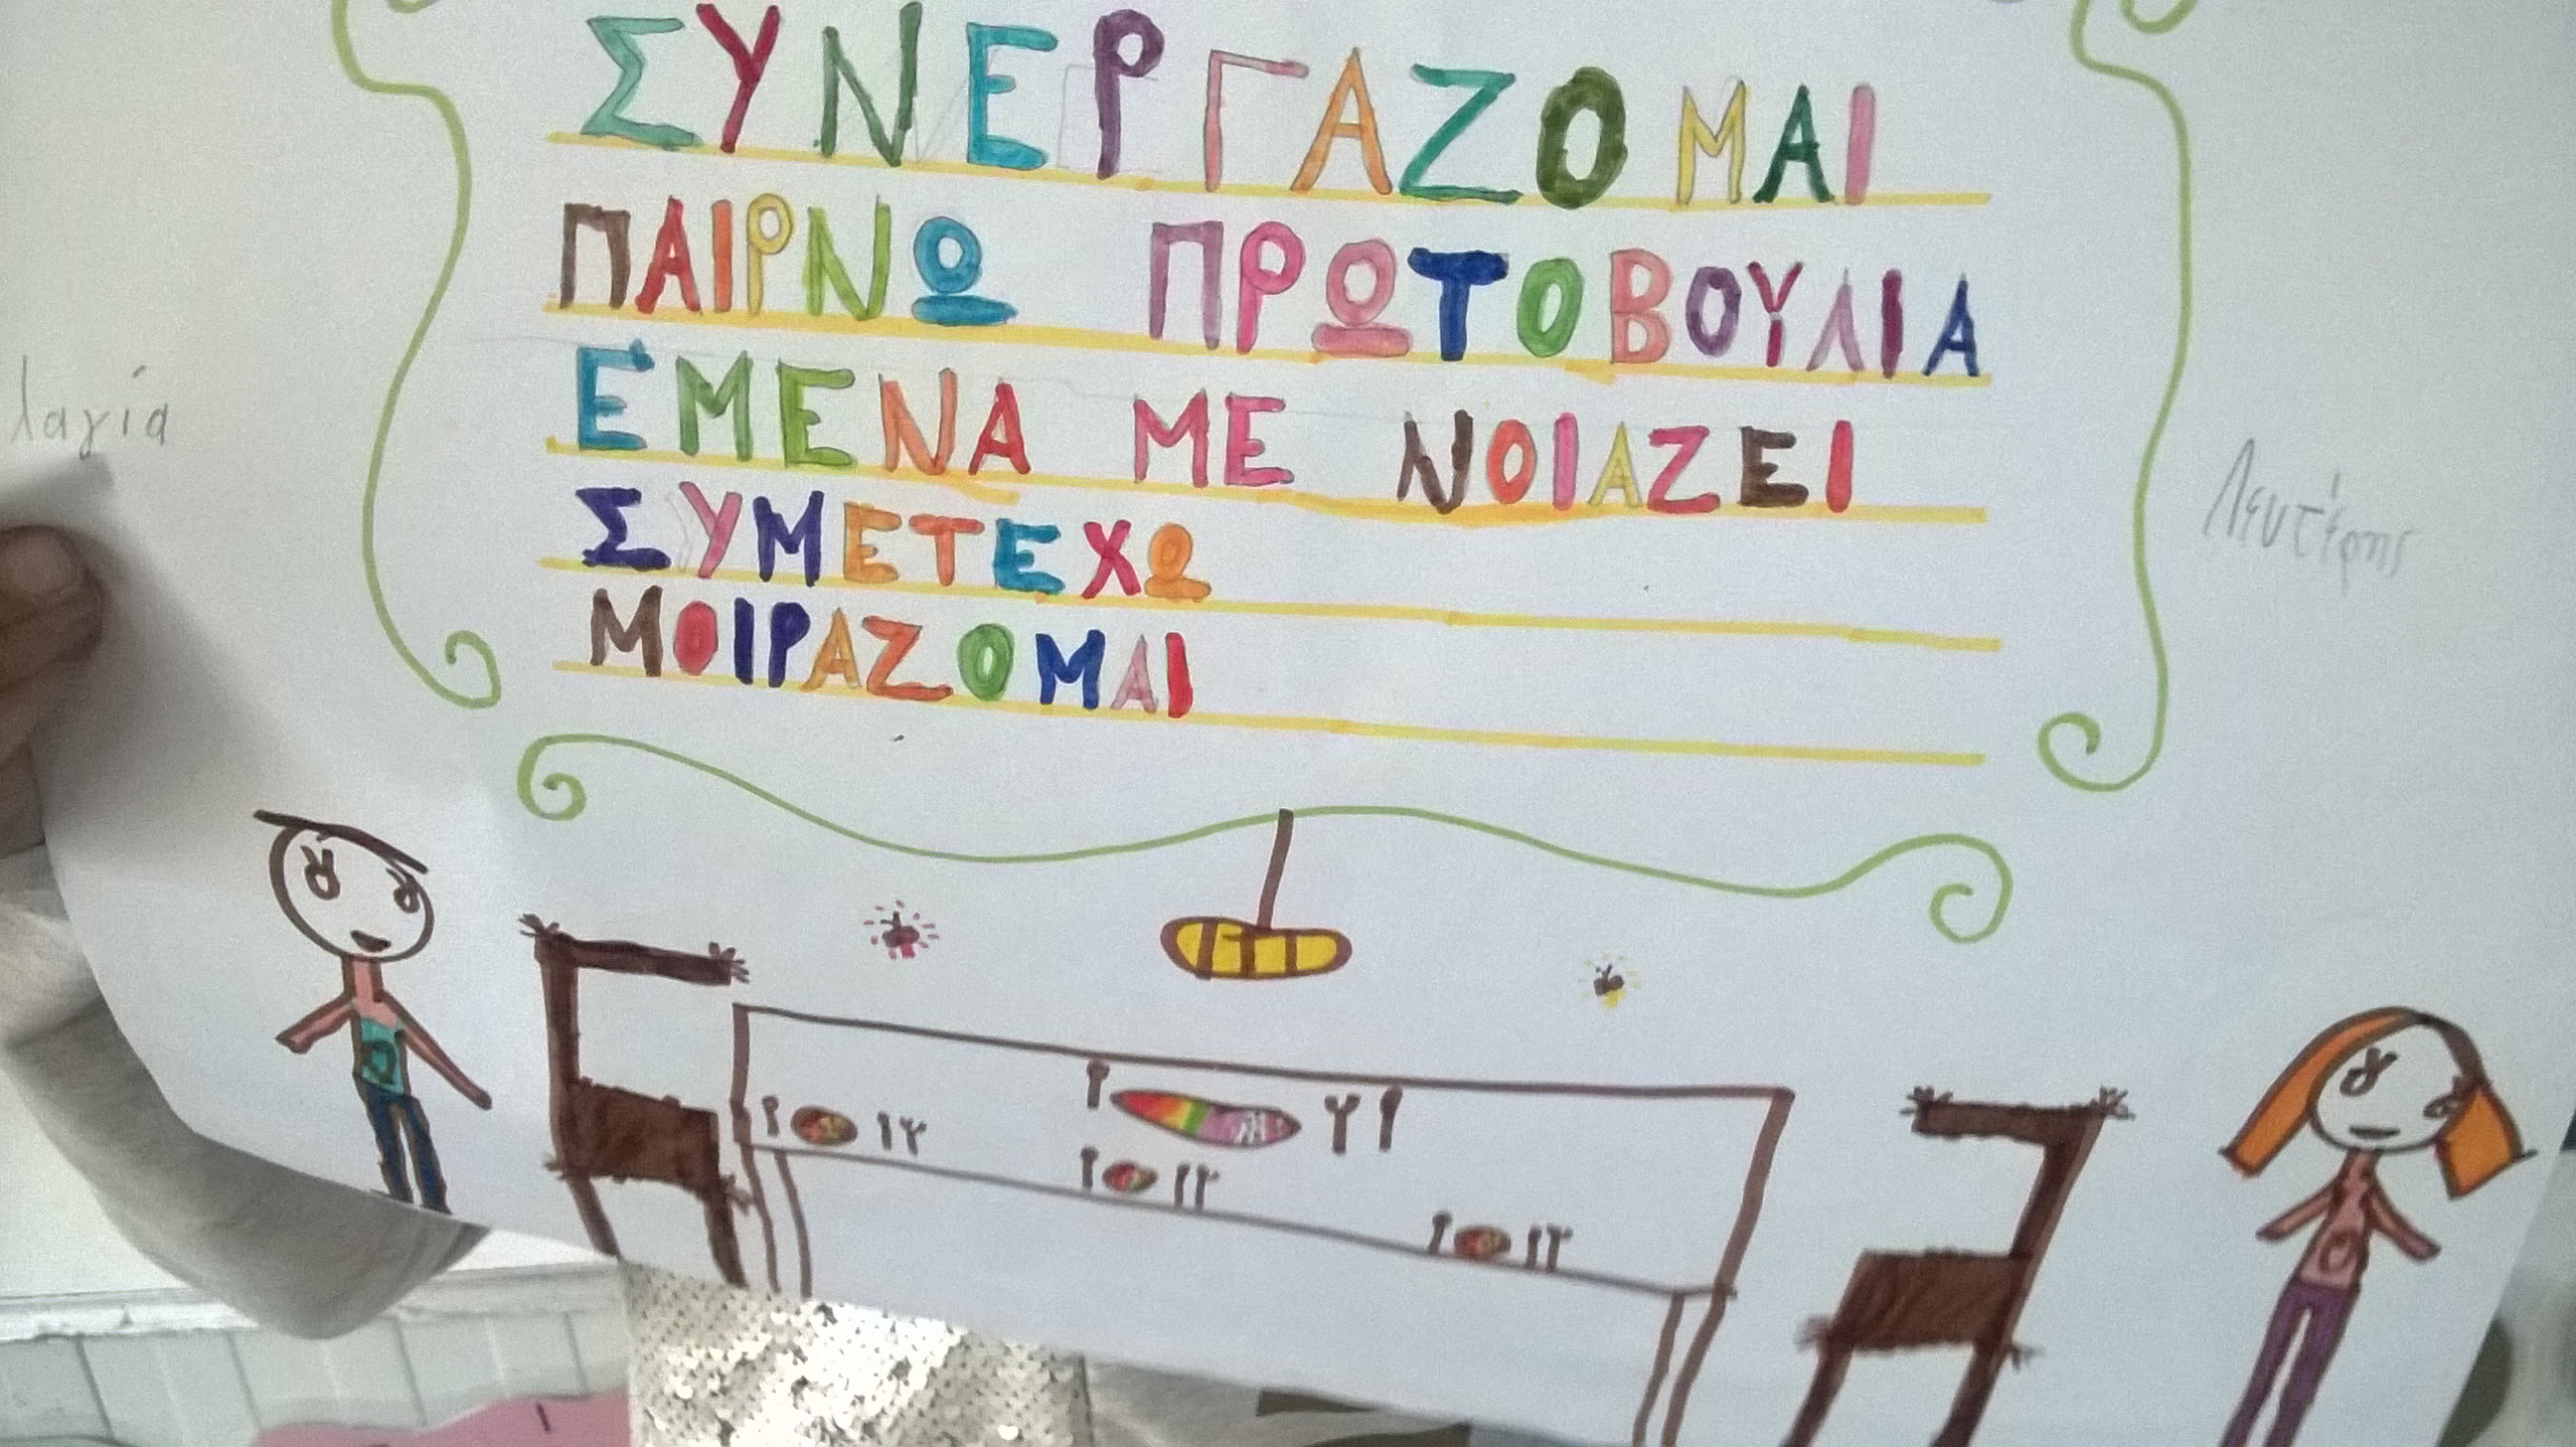 ΣΥΝΕΡΓΑΖΟΜΑΙ
ΠΑΙΡΝΩ ΠΡΩΤΟΒΟΥΛΙΑ
ΕΜΕΝΑ ΜΕ ΝΟΙΑΖΕΙ
ΣΥΜΕΤΕΧΩ
ΜΟΙΡΑΖΟΜΑΙ
λαγία
Λευτέρης